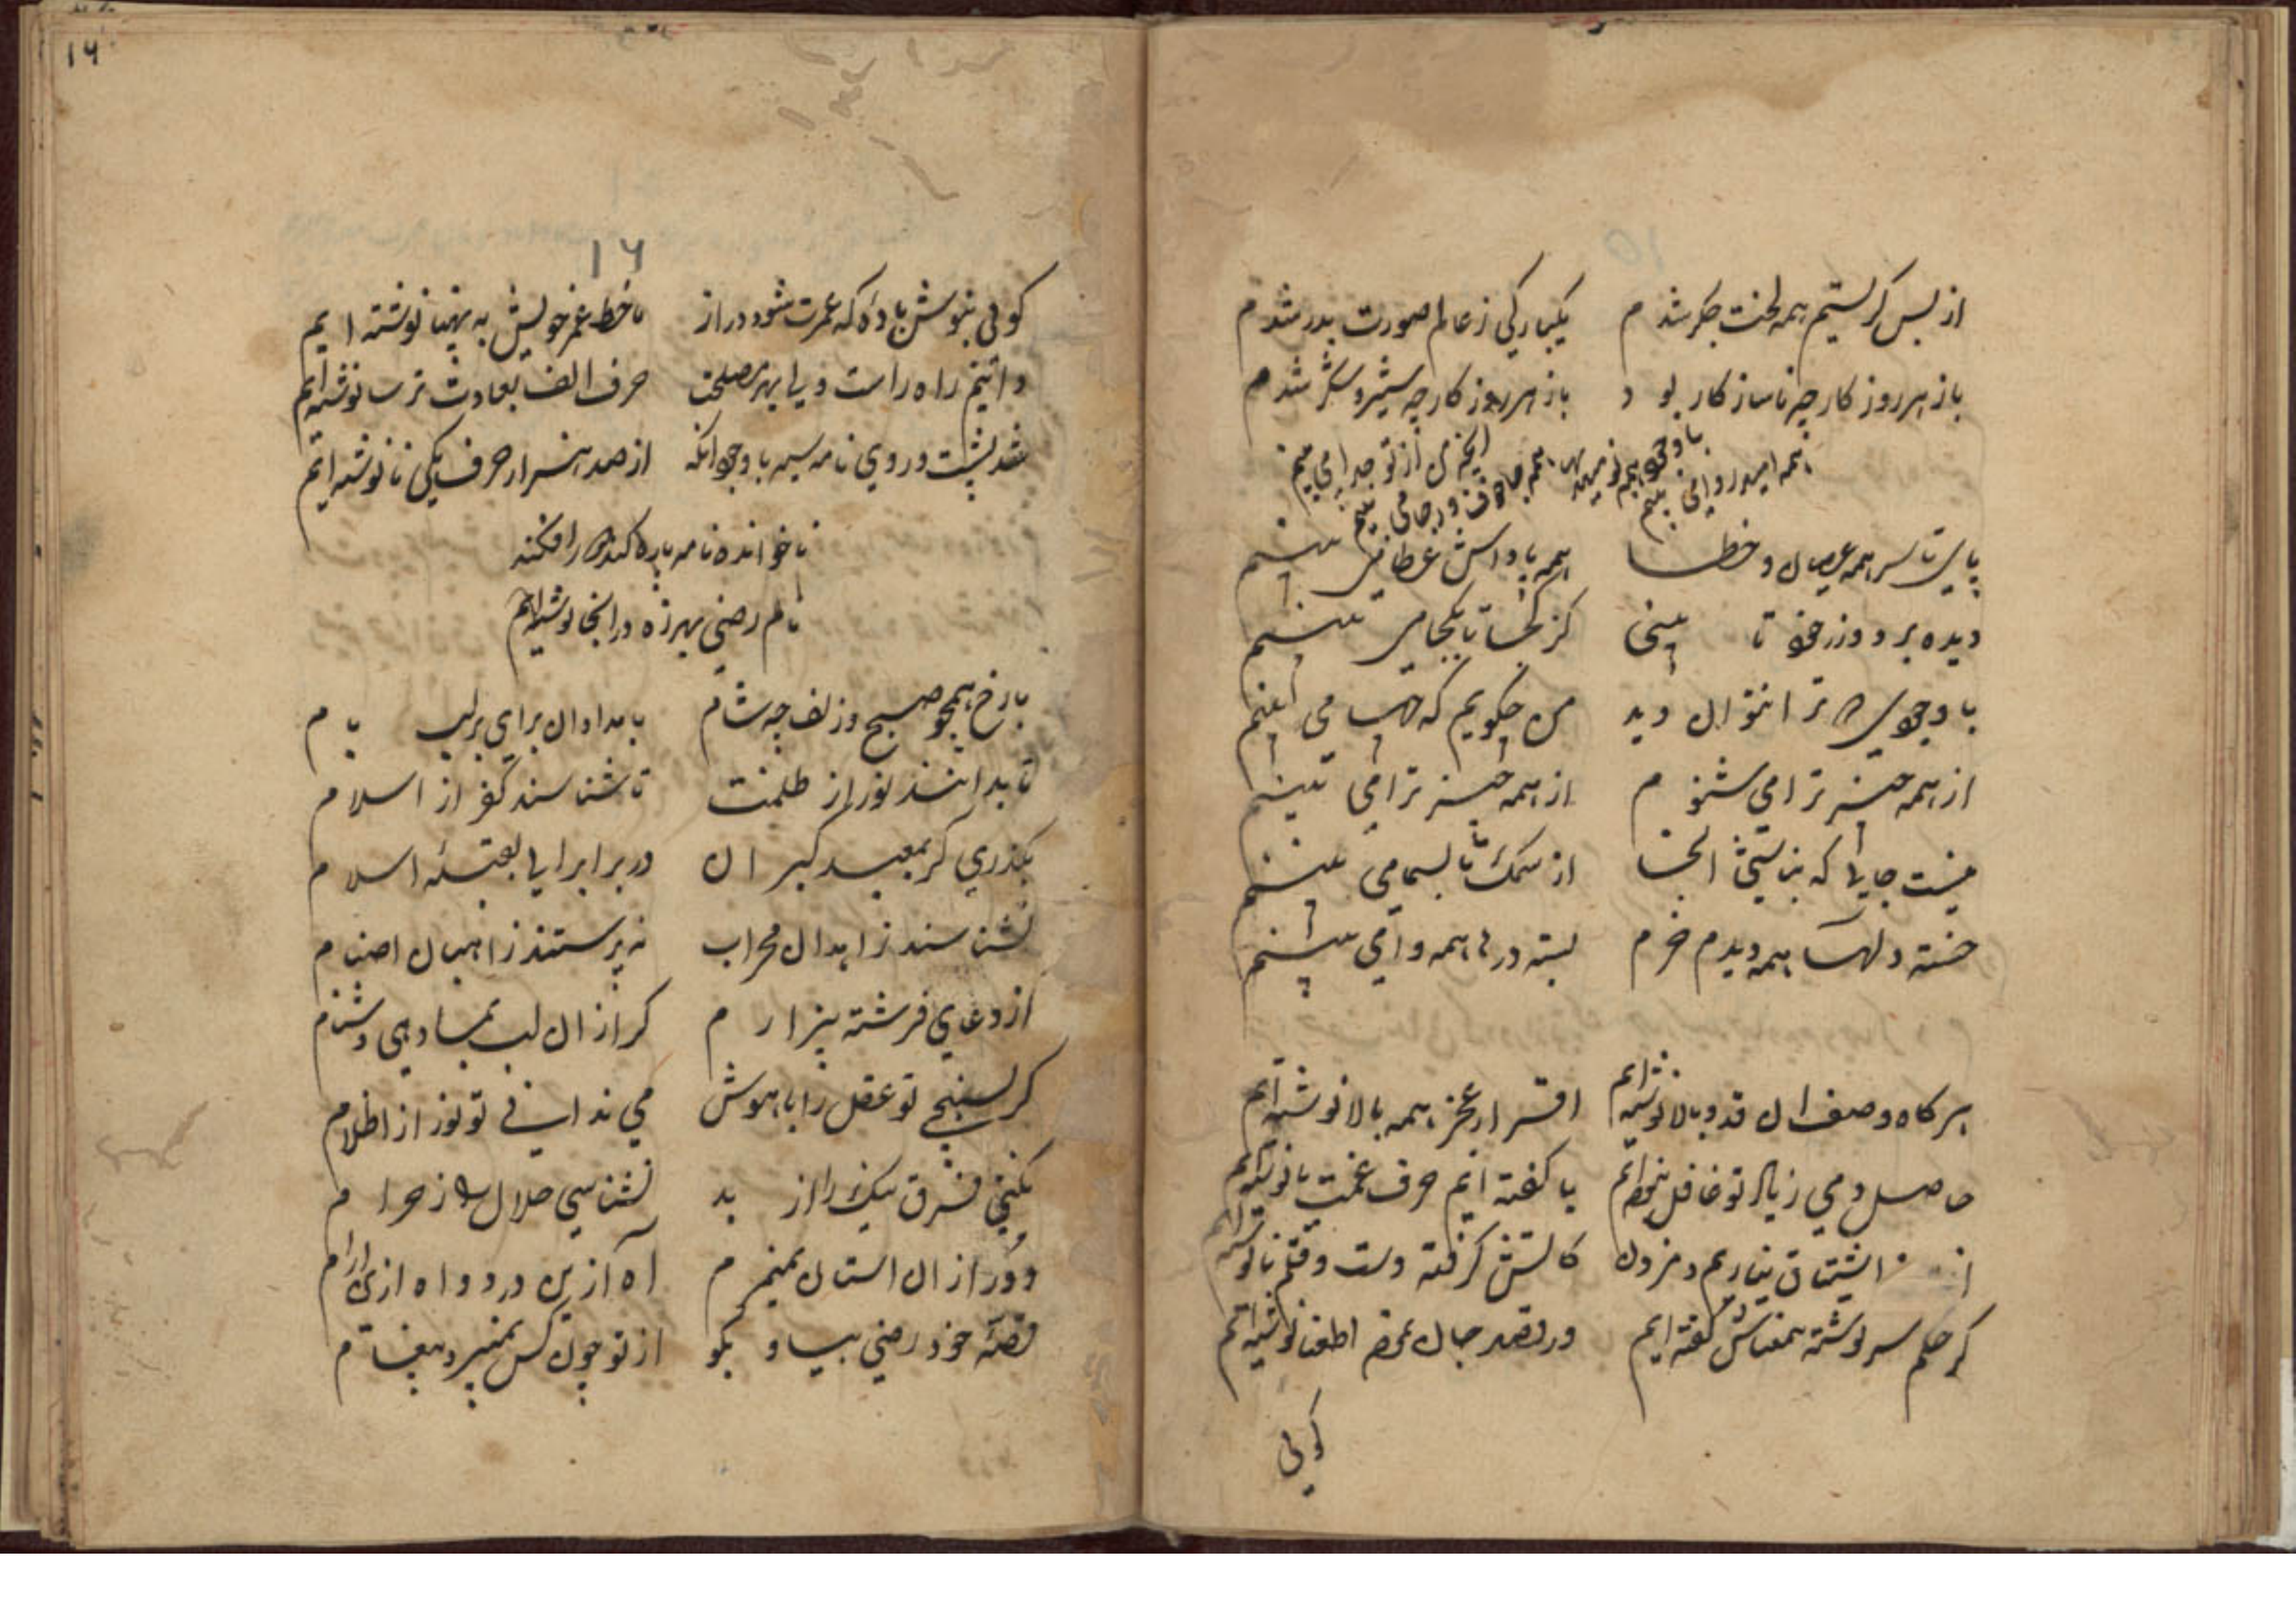 از بس گریستیم همه لخت جگر شدم یکبارگی ز عالم صورت بدر شدم
باز هر روزگار چه ناسازگار بود باز هر روزگار چه شیر و شکر شدم
همه امید روا می بینم
با وجود همه نومیدیها
همه جا خوف و رجا می بینم
اینچه من از تو جدا می بینم
پای تا سر همه عصیان و خطا همه پاداش عطا می بینم
دیده بر دوز ز خود تا بینی کز کجا تا بکجا می بینم
با وجودی که ترا نتوان دید من چگویم که چها می بینم
از همه چیز ترا می شنوم از همه چیز ترا می بینم
نیست جایی که نباشی آنجا از سمک تا بسما می بینم
خسته دلها همه دیدم خرم بسته درها همه وا می بینم
هر گاه وصف آن قد و بالا نوشته ایم اقرار عجز همه بالا نوشته ایم
حاصل دمی ز یاد تو غافل نبوده ایم یا گفته ایم حرف غمت یا نوشته ایم
از اشتیاق نیاریم دم زدن کاتش گرفته دست و قلم تا نوشته ایم
گر حکم سرنوشته بمعناش گفته ایم در قصد جان عرض اطعنا نوشته ایم
گویی
۱۶
۱۶
گویی بنوش باده که عمرت شود دراز ما خط عمر خویش به مینا نوشته ایم
دانیم راه راست ولی بهر مصلحت حرف الف بعادت ترسا نوشته ایم
شد پشت و روی نامه سیه با وجود آنکه از صد هزار حرف یکی نا نوشته ایم
ناخوانده نامه پاره کند گر افکند
نام رضی بهرزه در آنجا نوشته ایم
با رخ همچو صبح و زلف چه شام بامدادان برای بر لب بام
تا بدانند نور از ظلمت تا شناسند کفر از اسلام
بگذری گر بمعبد گبران در برابر آیی بقبلهٔ اسلام
نشناسند زاهدان محراب نه پرستند راهبان اصنام
از دعای فرشته بیزارم گر از آن لب بما دهی دشنام
گر بسنجی تو عقل را با هوش می ندانی تو نور از اظلام
نکنی فرق نیک را از بد نشناسی حلال را ز حرام
دور از آن استان نمیرم آه ازین درد و اه ازین آرام
قصهٔ خود رضی بیا و بگو از تو چون کس نمیبرد پیغام